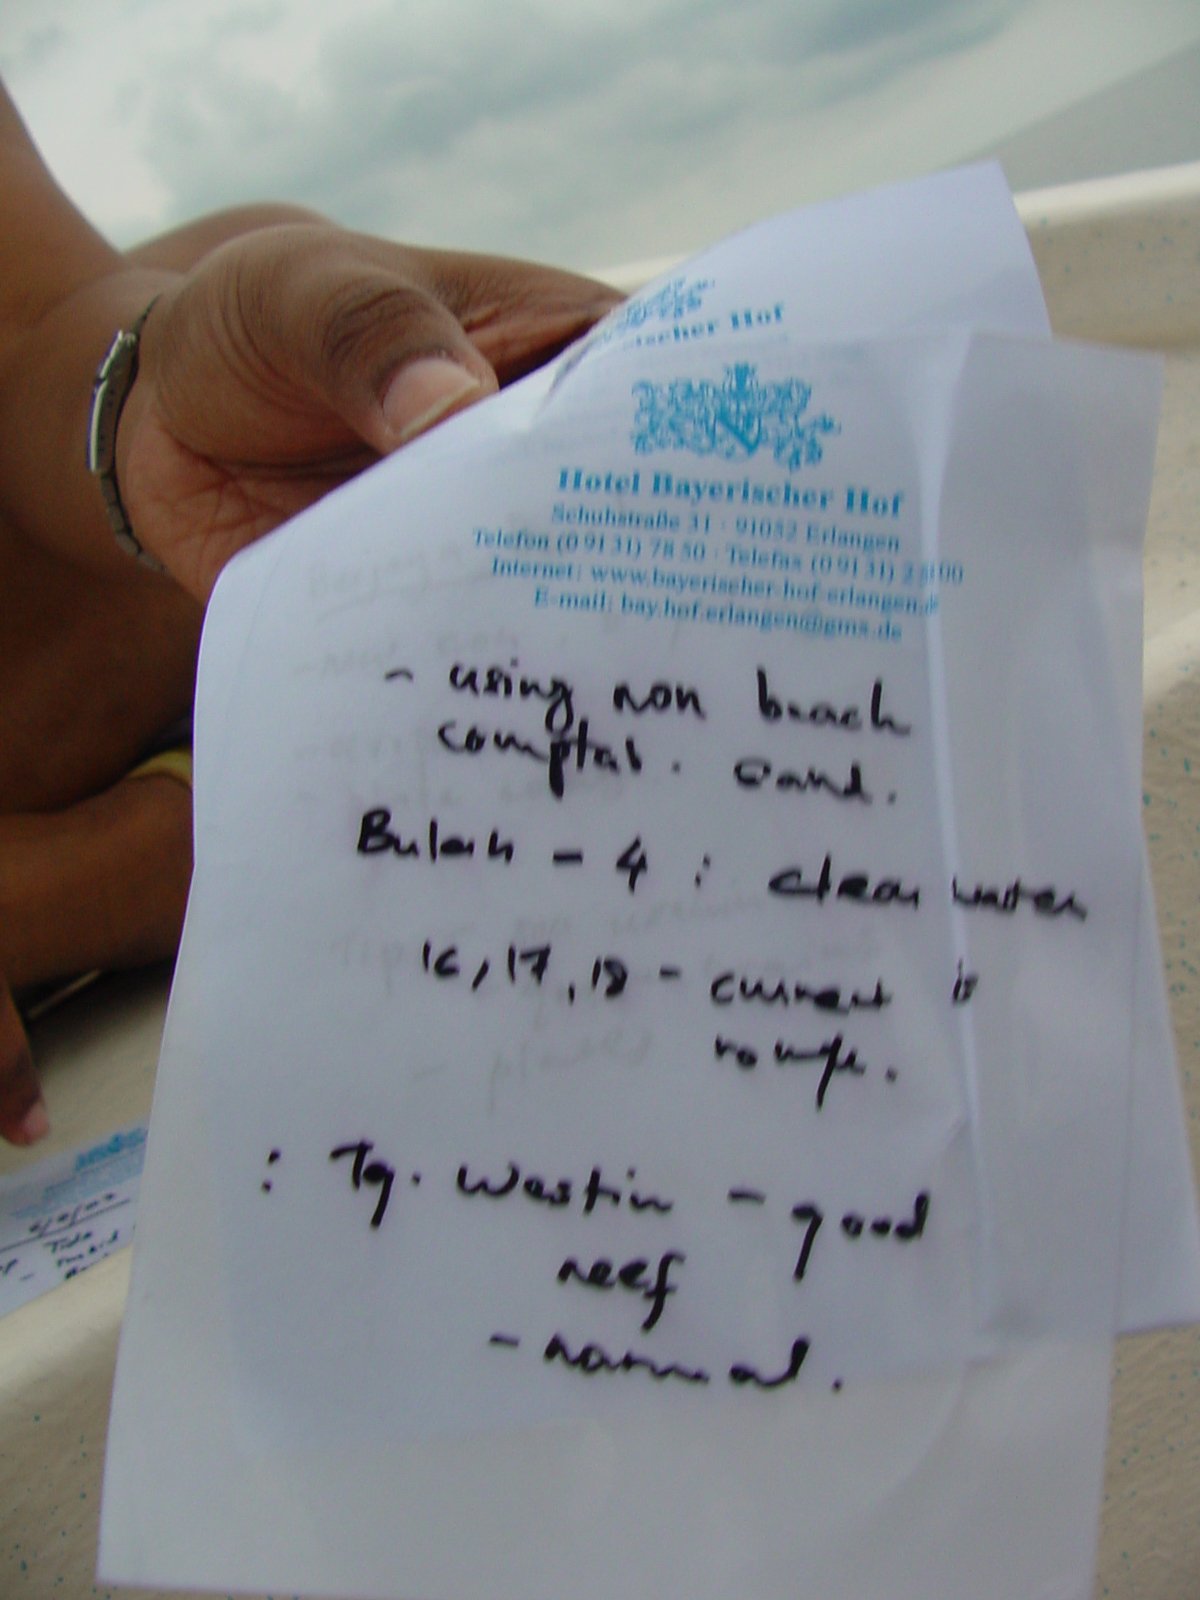 scher Hof
Hotel Bayerischer Hof
Schuhstraße 31 · 91052 Erlangen
Telefon (0 91 31) 78 50 · Telefax (0 91 31) 2 00
Internet: www.bayerischer-hof-erlangen.de
E-mail: bay.hof.erlangen@gmx.de
- using non beach
. sand.
Bulah - 4 : clear water
16, 17, 18 - current is
rough.
: Tg. Westin - good
reef
- normal.
Tide